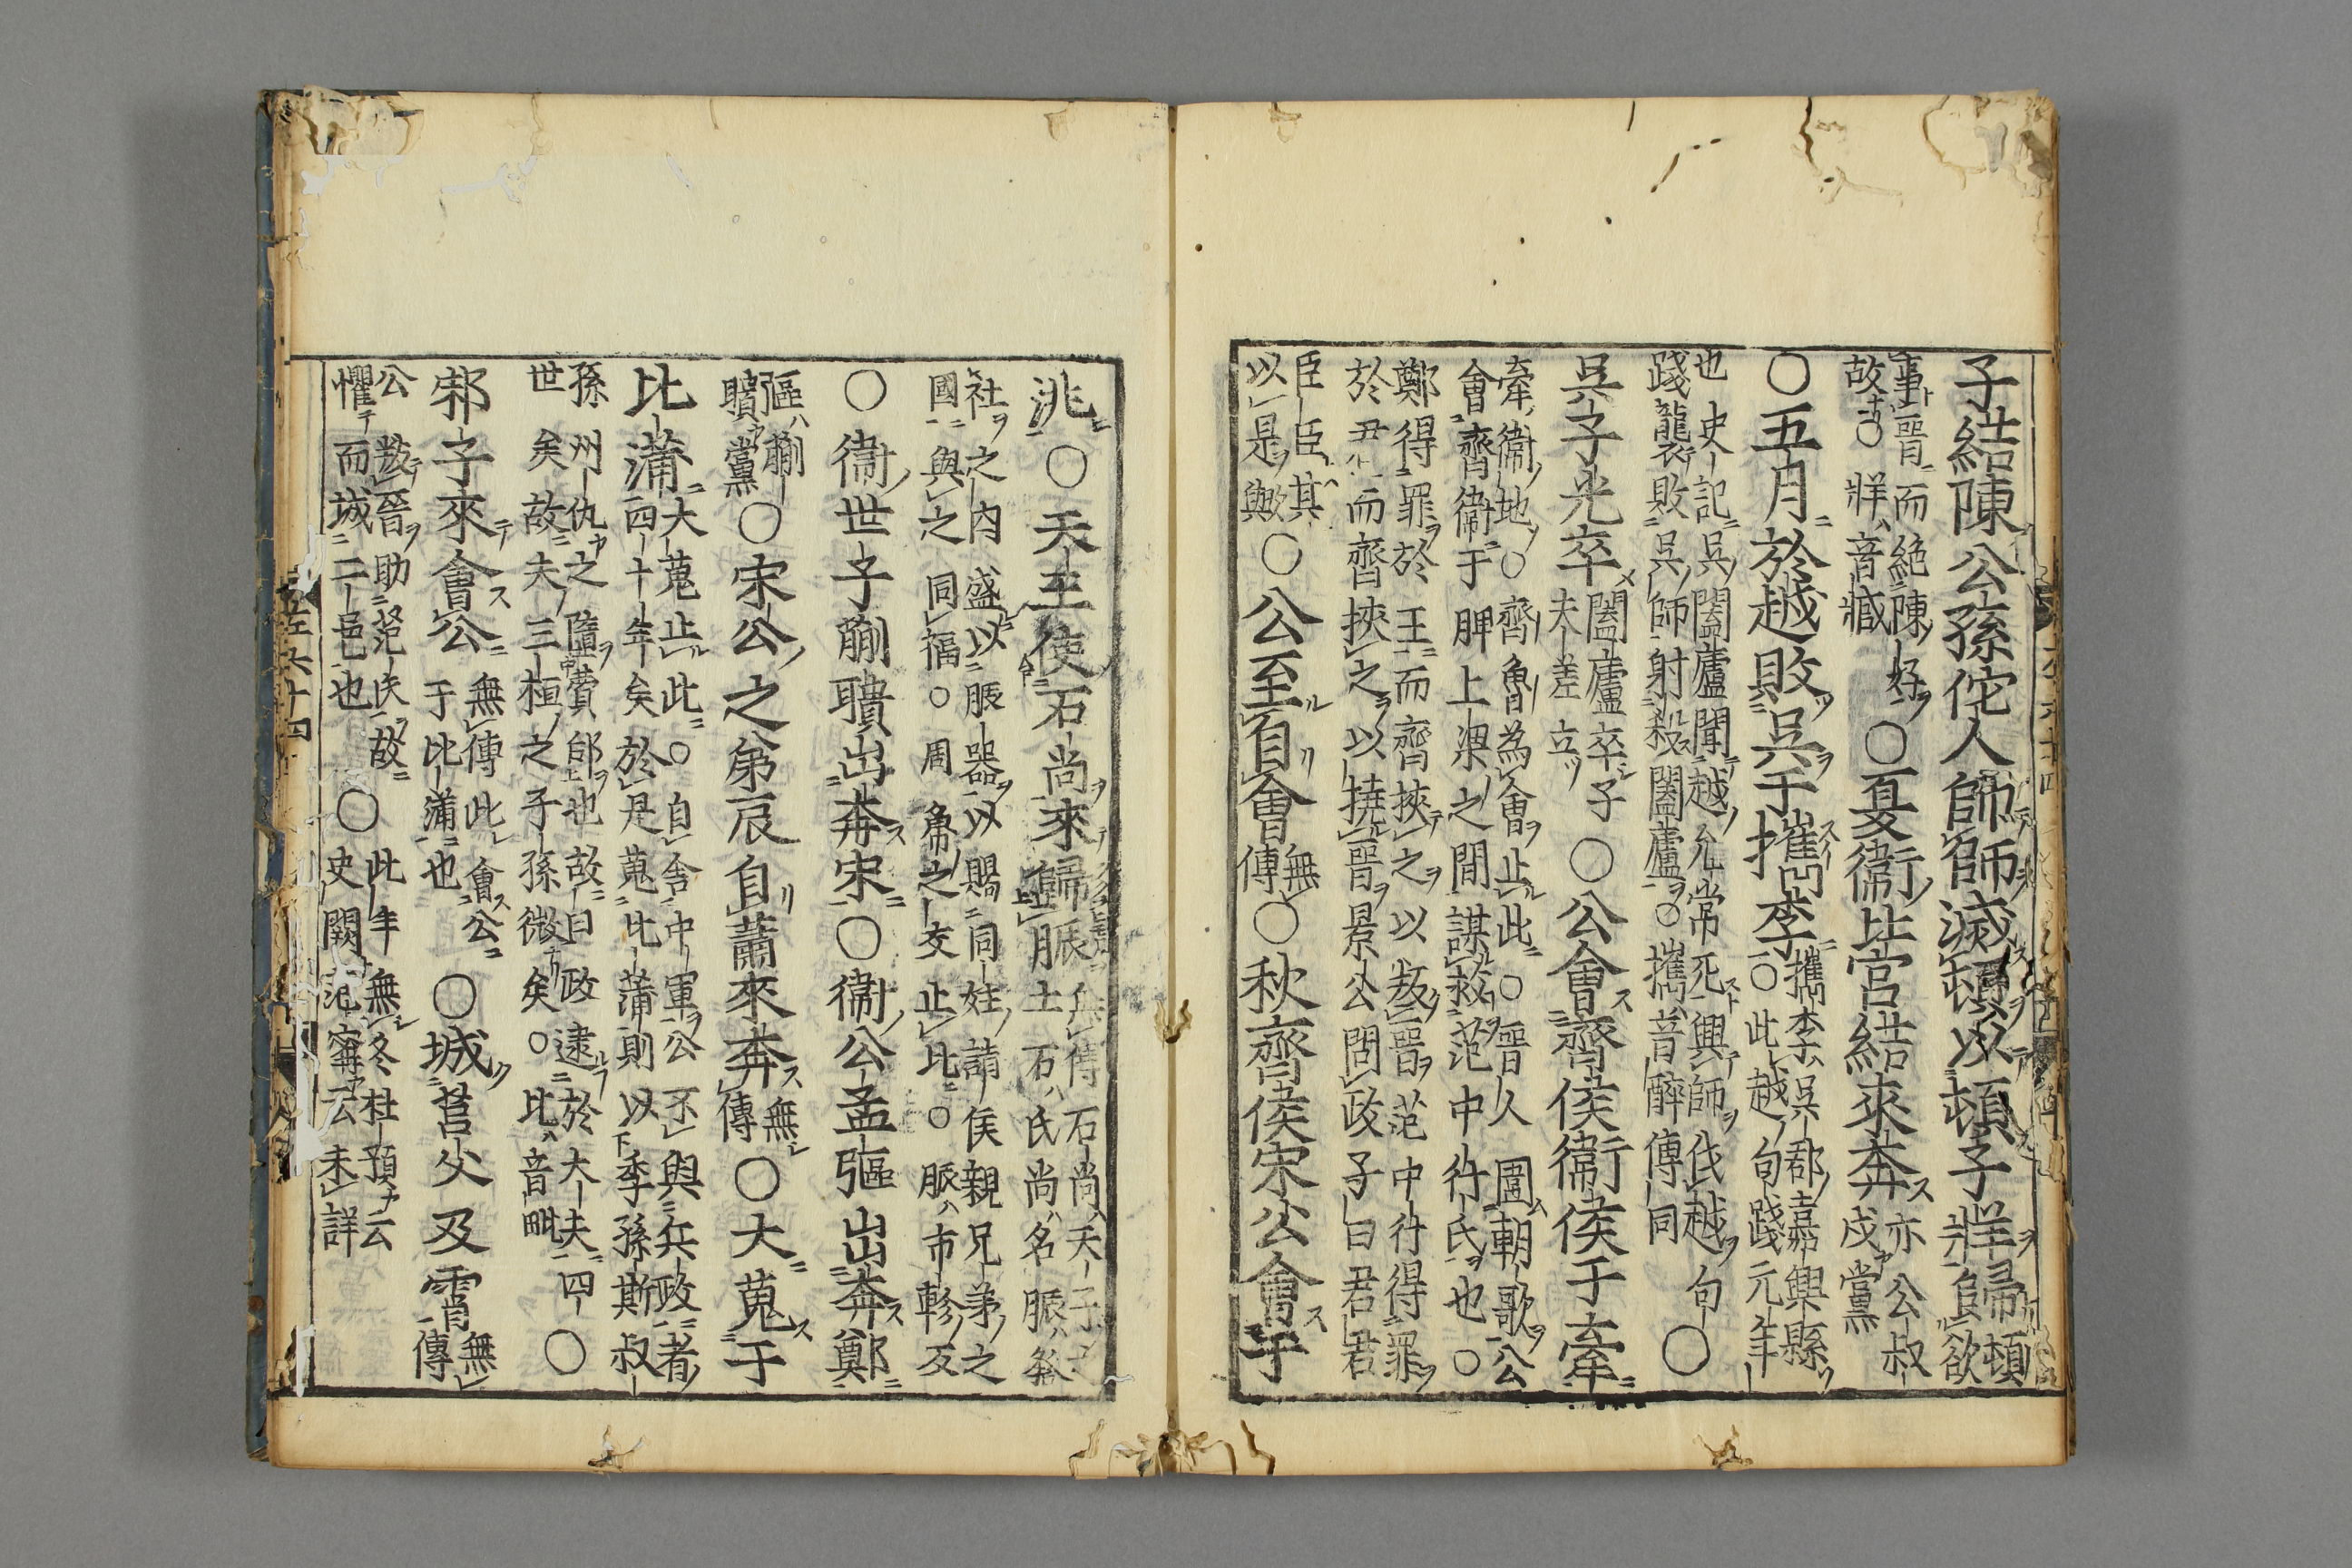 子結陳公孫佗人師師滅頓以頓子牂歸頓欲
事晉而絕陳好
故○牂音臧○夏衛北宮結來奔亦公叔
戍黨
○五月於越敗吳于檇李檇李吳郡嘉興縣
○此越句踐元年
也史記吳闔廬聞越允常死興師伐越句
踐襲敗吳師射殺闔廬○檇音醉傳同○
吳子光卒闔廬卒子
夫差立○公會齊侯衛侯于牽
牽衛地○齊魯為會止此○晉人圍朝歌公
會齊衛于脾上梁之間謀救范中行氏也○
鄭得罪於王而齊挾之以叛晉范中行得罪
於而齊挾之以撓晉景公問政子曰君君
臣臣其
以是歟○公至自會無
傳○秋齊侯宋公會于
洮○天王使石尚來歸脤無傳石尚天子之
士石氏尚名脤祭
社之內盛以脤器以賜同姓諸侯親兄弟之
國與之同福○周魯之交止此○脤市軫反
○衛世子蒯聵出奔宋○衛公孟彄出奔鄭
彄蒯
聵黨○宋公之弟辰自蕭來奔無
傳○大蒐于
比蒲大蒐止此○自舍中軍公不與兵政者
四十年矣於是蒐比蒲則以季孫斯叔
孫州仇之隳費郈也故曰政逮於大夫四
世矣故夫三桓之子孫微矣○比音毗○
邾子來會公無傳此會公
于比蒲也○城莒父及霄無
傳
公叛晉助范氏故
懼而城二邑也○此年無冬杜預云
史闕范甯云未詳
左六十四